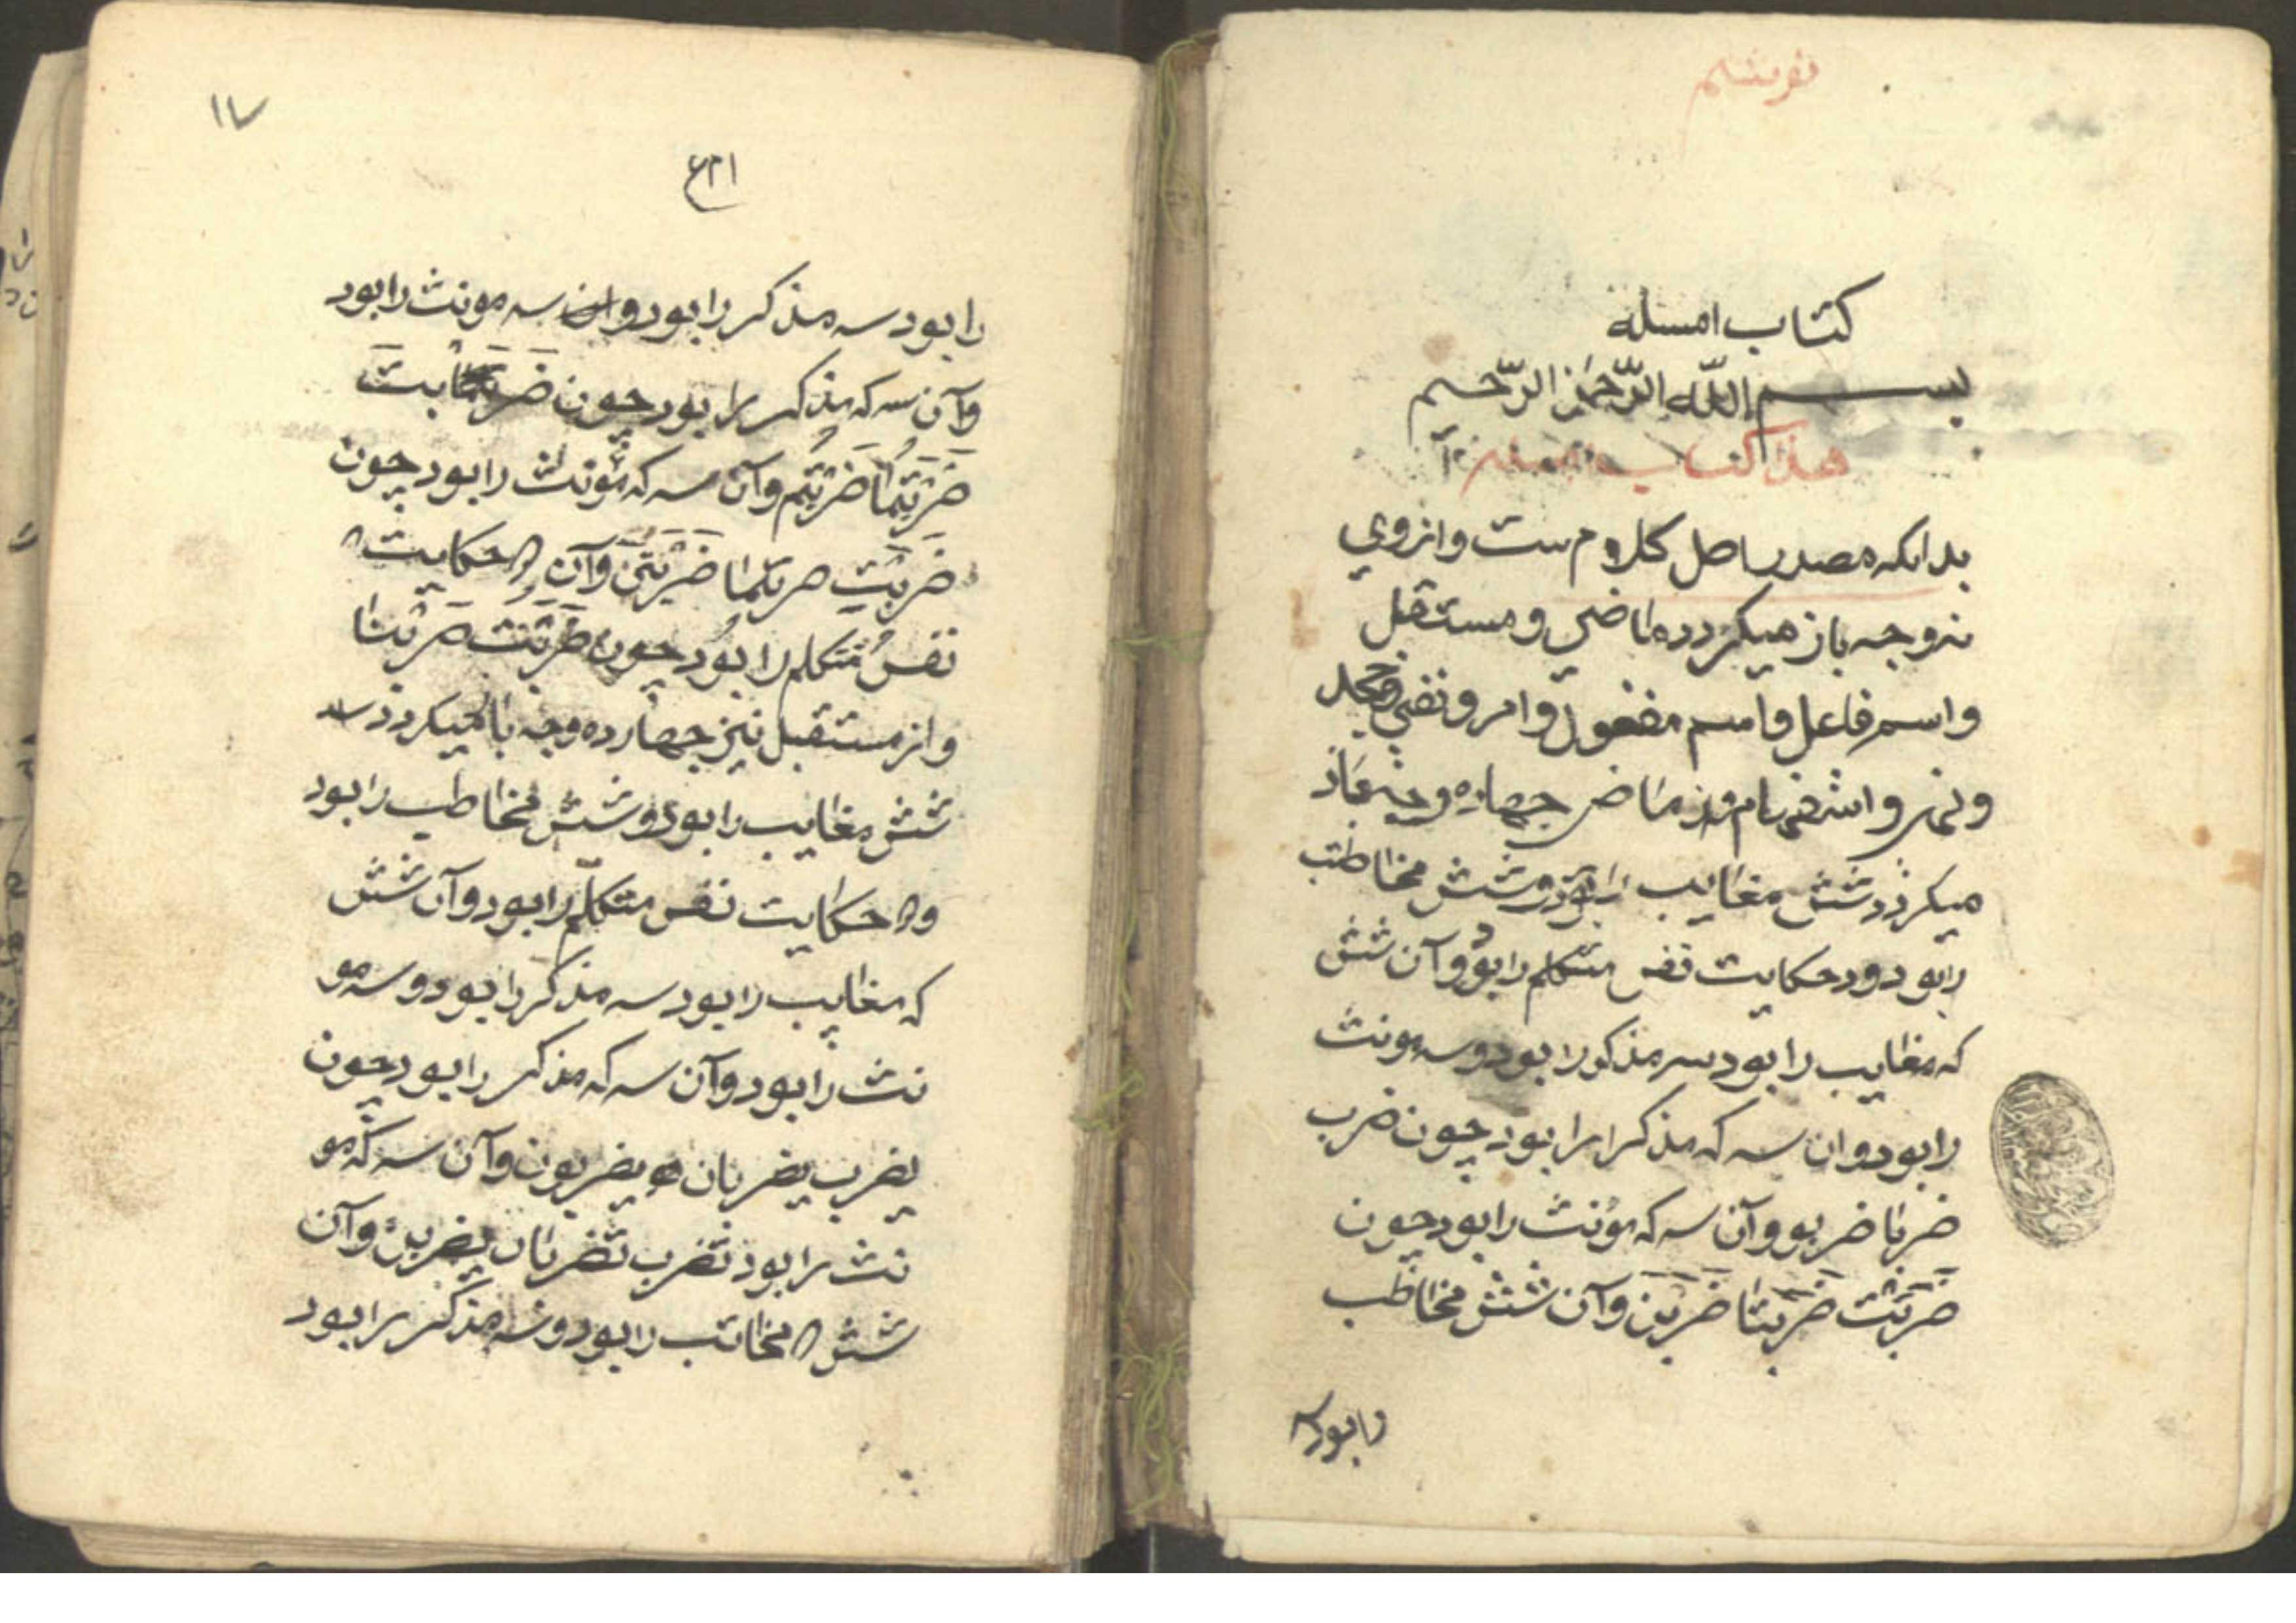 کتاب امسله
بسم اللّه الرّحمن الرّحیم
هذا کتاب
بدانکه مصدر اصل کلام ست و از وی
نه وجه باز میکردد ماضی و مستقبل
و اسم فاعل و اسم مفعول و امر و نفی و جحد
و نهی و استفهام و از ماضی چهارده وجه باز
میکردد شش مغایب را بود و شش مخاطب
را بود و د حکایت نفس متکلم را بود و آن شش
که مغایب را بود سه مذکور را بود و سه مونث
را بود و ان سه که مذکر را بود چون ضرب
ضربا ضربو و آن سه که مؤنث را بود چون
ضَرَبَتْ ضَرَبَتا ضَرَبْنَ و آن شش مخاطب
را بود سه
۱۷
را بود سه مذکر را بود و سه مونث را بود
و آن سه که مذکر را بود چون ضَرَبْتَ
ضَرَبْتُمٰا ضَرَبْتُم و آن سه که مؤنث را بود چون
ضَرَبْتِ ضربتما ضَرَبْتُنَّ و آن ۲ حکایت
نفس متکلم را بود چون ضَرَبْتُ ضَرَبْنا
و از مستقبل نیز چهارده وجه باز میکردد
شش مغایب را بود و شش مخاطب را بود
و ۲ حکایت نفس متکلّم را بود و آن شش
که مغایب را بود سه مذکر را بود و سه مو
نث را بود و آن سه که مذکر را بود چون
یضرب یضربان یضربون و آن سه که مو
نث را بود تضرب تضربان یضربن و آن
شش ۲ مخاتب را بود و سه مذکر را بود